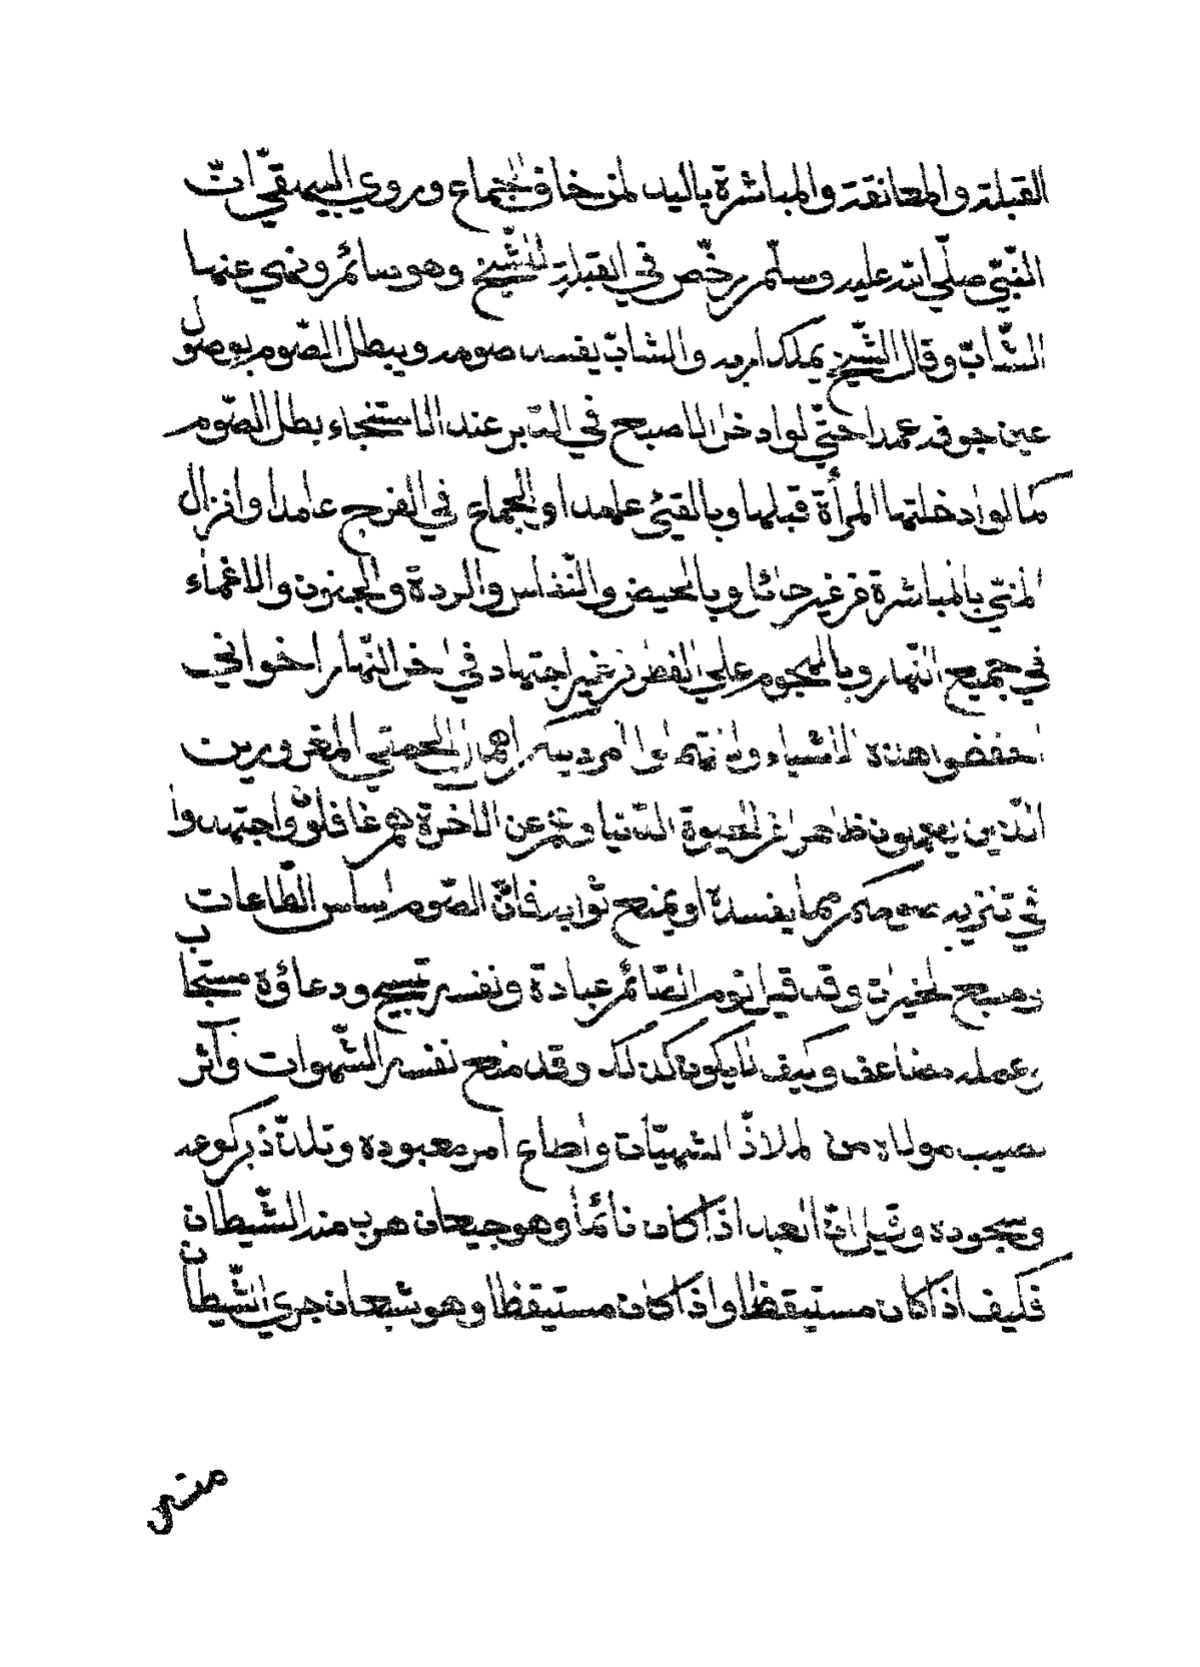 القبلة والمعانقة والمباشرة باليد لمن خاف الجماع وروي البيهقيّ انّ
النّبيّ صلّي الله عليه وسلّم رخّص في القبلة للشّيخ وهو صائم ونهي عنها
الشّابّ وقال الشّيخ يملك اربه والشابّ يفسد صومه ويبطل الصّوم بوصول
عين جوفه عمدا حتّي لو ادخل الاصبع في الدّبر عند الاستنجاء بطل الصّوم
كما لو ادخلتها المرأة قبلها وبالقيئ عامدا والجماع في الفرج عامدا وانزال
المنيّ بالمباشرة من غير حائل وبالحيض والنّفاس والردة والجنون والاغماء
في جميع النّهار وبالهجوم علي الفطر من غير اجتهاد في اخر النّهار اخواني
احفضوا هذه الاشياء ولا تهملوا امر دينكم اهمال الحمقي المغرورين
الّذين يعلمون ظاهرا من الحيوة الدّنيا وهم عن الاخرة هم غافلون واجتهدوا
في تنزيه صومكم مما يفسده او يمنع ثوابه فانّ الصّوم اساس الطّاعات
ومنبع الخيرات وقد قيل نوم الصّائم عبادة ونفسه تسبيح ودعاؤه مستجاب
وعمله مضاعف وكيف لا يكون كذلك وقد منع نفسه الشّهوات وآثر
نصيب مولاه من الملاذّ الشهيّات واطاع امر معبوده وتلذّذ بركوعه
وسجوده وقيل انّ العبد اذا كان نائما وهو جيعان هرب منه الشّيطان
فكيف اذا كان مستيقظا واذا كان مستيقظا وهو شبعان جري الشّيطان